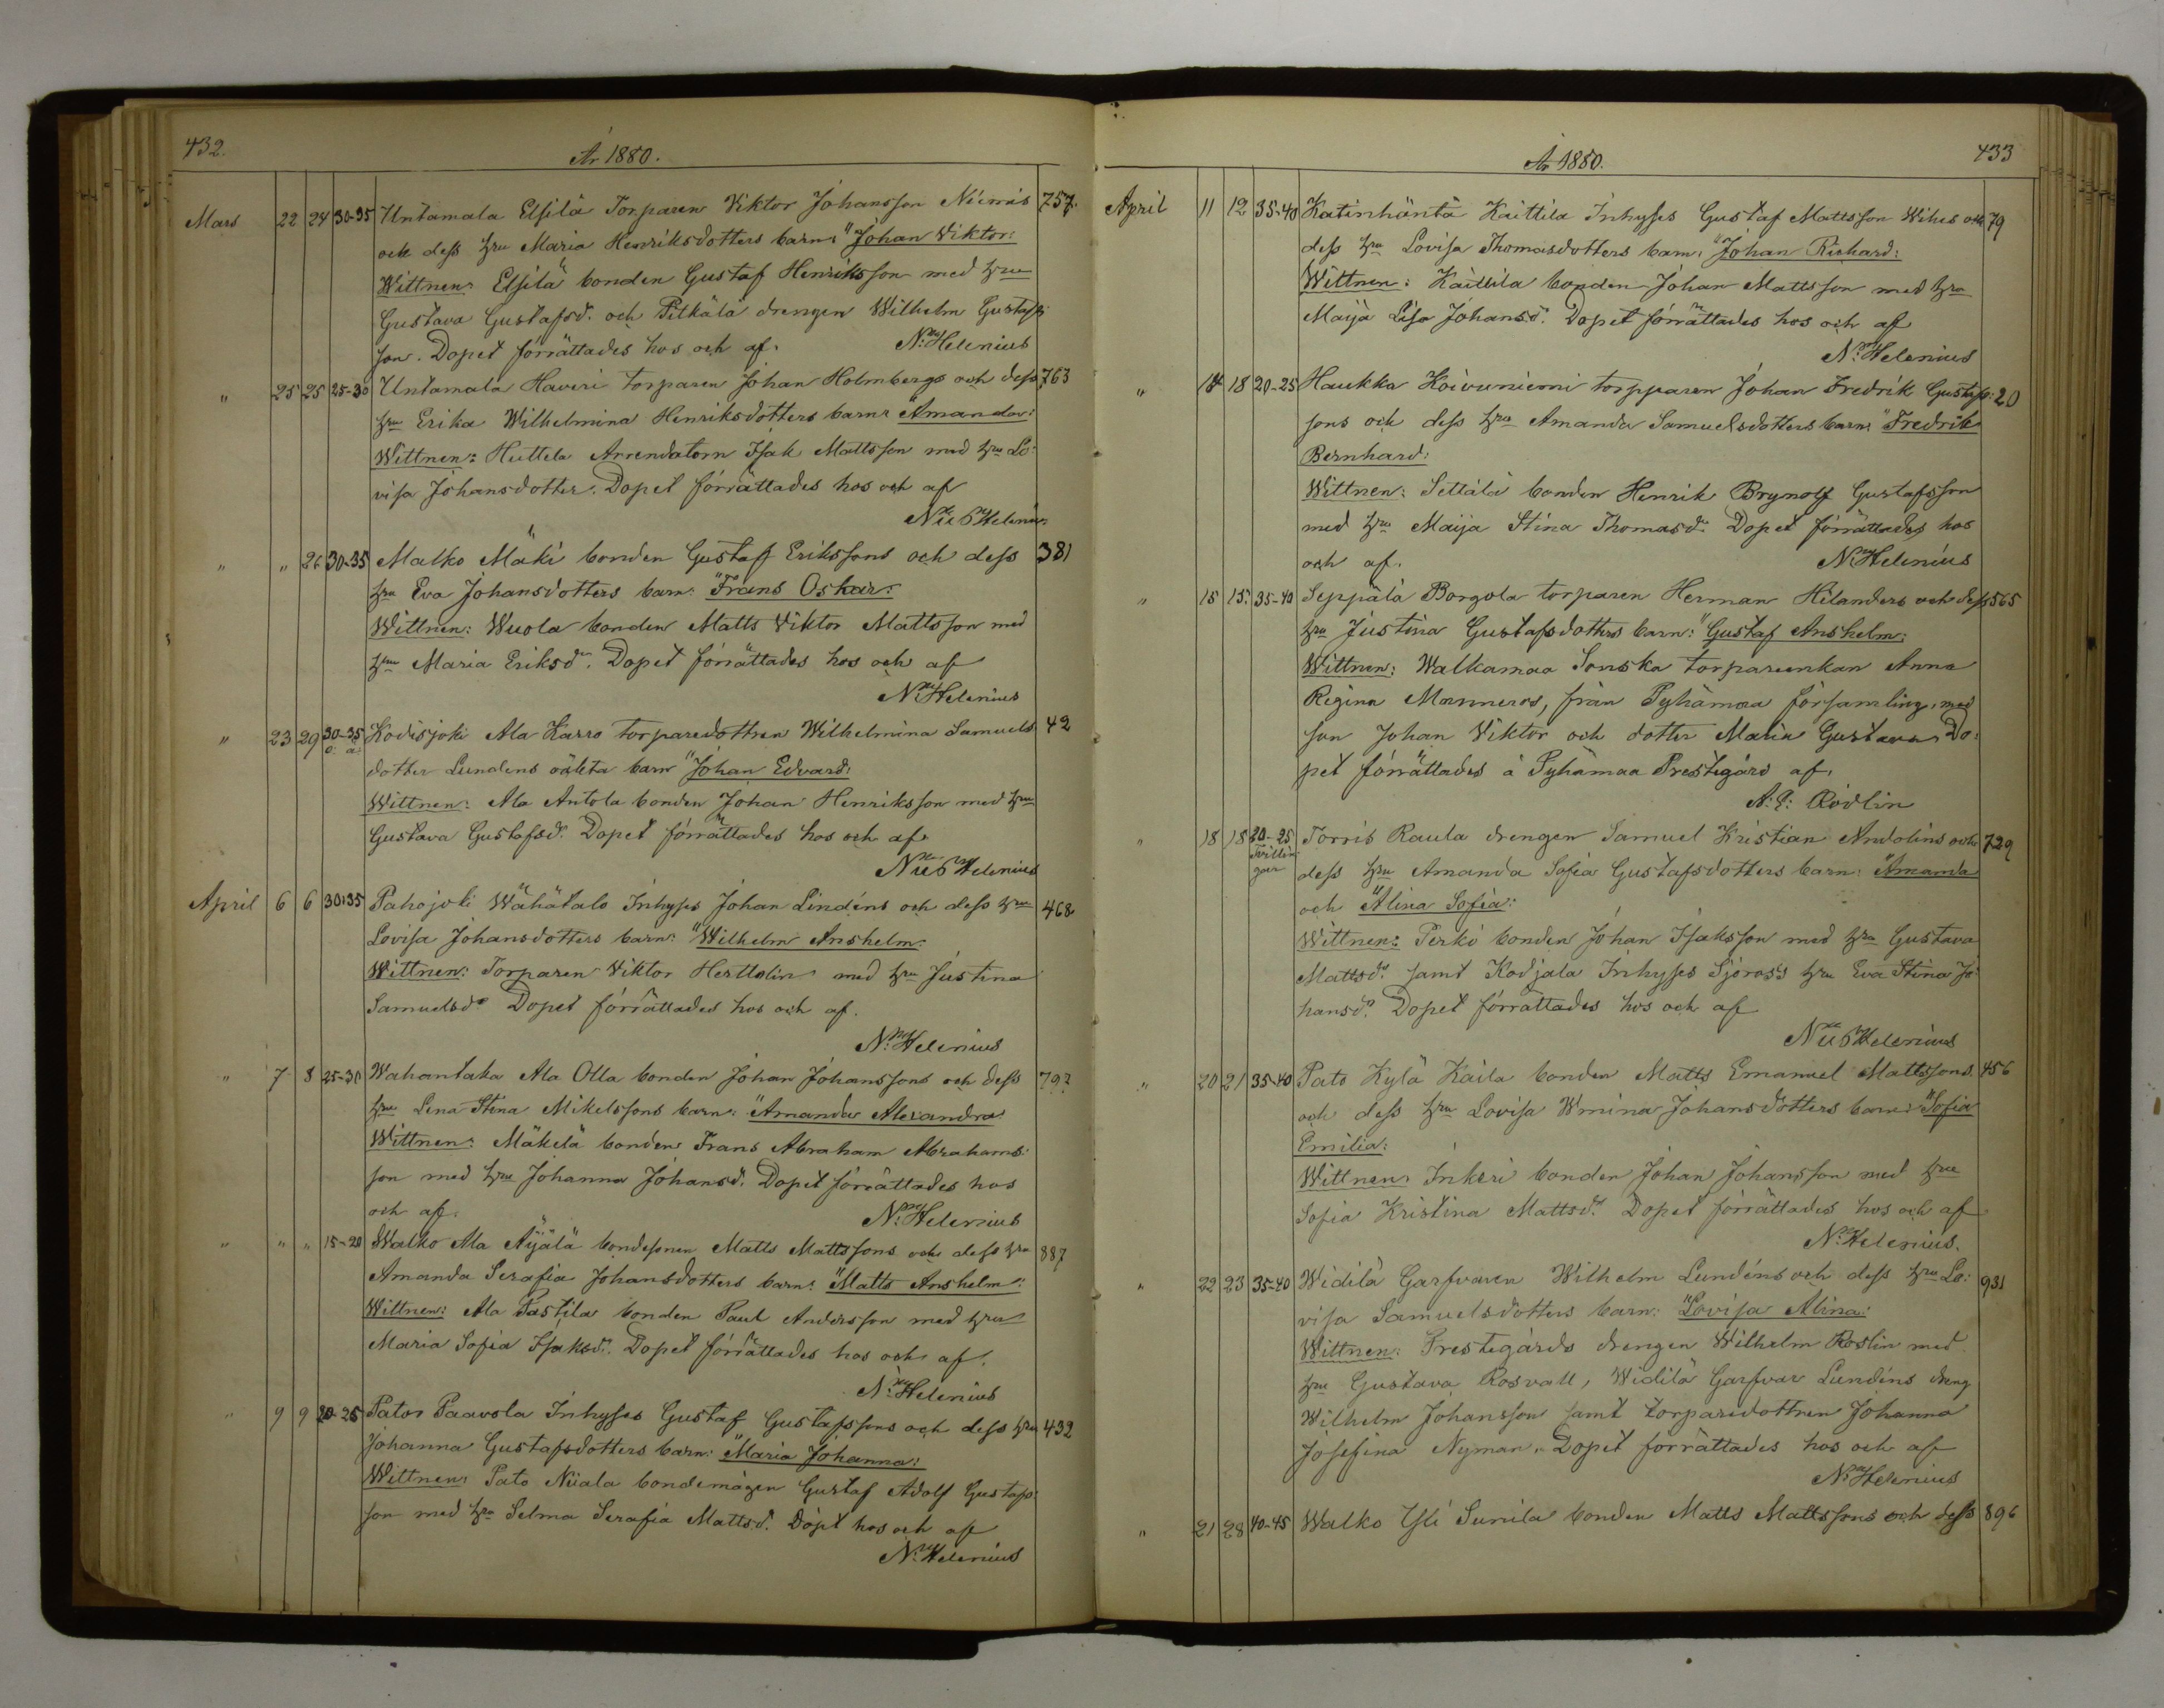 432.
År 1880.
Mars 22 24 30-35 Untamala Elsilä Torparen Viktor Johansson Niemis 757.
och dess hru Maria Henriksdotters barn: "Johan Viktor:
Wittnen: Elsilä bonden Gustaf Henriksson med hru
Gustava Gustafsd. och Pitkälä drengen Wilhelm Gustafs:
son. Dopet förrättades hos och af. N: Helenius
" 25 25 25-30 Untamala Haveri torparen Johan Holmbergs och dess 763
hru Erika Wilhelmina Henriksdotters barn: Amanda:
Wittnen: Huttela Arrendatorn Isak Mattsson med hru Lo:
visa Johansdotter. Dopet förrättades hos och af
Helenius
" " 26 30-35 Malko Mäki bonden Gustaf Erikssons och dess 381
hru Eva Johansdotters barn: "Frans Oskar:
Wittnen: Wuola bonden Matts Viktor Mattsson med
hru Maria Eriksdr. Dopet förrättades hos och af
N: Helenius
" 23 29 30-35 o. ä. Kodisjoki Ala Karro torparedottren Wilhelmina Samuels 42
dotter Lundens oäkta barn "Johan Edvard:
Wittnen: Ala Antola bonden Johan Henriksson med hru
Gustava Gustafsdr. Dopet förrättades hos och af
Helenius
April 6 6 30-35 Pahojoki Wähätalo Inhyses Johan Lindéns och dess hru 468
Lovisa Johansdotters barn: "Wilhelm Anshelm:
Wittnen: Torparen Viktor Herttolin med hru Justina
Samuelsdr Dopet förrättades hos och af.
N: Helenius
" 7 8 25-30 Wahantaka Ala Olla bonden Johan Johanssons och dess 792
hru Lena Stina Mikelssons barn: "Amanda Alexandra:
Wittnen: Mäkelä bonden Frans Abraham Abrahams:
son med hru Johanna Johansd. Dopet förrättades hos
och af. N: Helenius
" " " 15-20 Walko Ala Äijälä bondesonen Matts Mattssons och dess hru 887
Amanda Serafia Johansdotters barn: "Matts Anshelm:
Wittnen: Ala Pastila bonden Paul Andersson med hru
Maria Sofia Isaksdr. Dopet förrättades hos och af.
N: Helenius
" 9 9 20-25 Pato Paavola Inhyses Gustaf Gustafssons och dess hru 432
Johanna Gustafsdotters barn: "Maria Johanna:
Wittnen: Pato Niiala bondemågen Gustaf Adolf Gustafs:
son med hru Selma Serafia Mattsd. Döpt hos och af
N: Helenius
433
År 1880.
April 11 12 35-40 Katinhäntä Kaittila Inhyses Gustaf Mattsson Wihes och 79
dess hru Lovisa Thomasdotters barn: "Johan Richard:
Wittnen: Kaittila bonden Johan Mattsson med hru
Maija Lisa Johansdr. Dopet förrättades hos och af
N: Helenius
" 14 18 20-25 Haukka Koivuniemi torpparen Johan Fredrik Gustafs: 20
sons och dess hru Amanda Samuelsdotters barn: "Fredrik
Bernhard:
Wittnen: Settälä bonden Henrik Brynolf Gustafsson
med hru Maija Stina Thomasdr. Dopet förrättades hos
och af. N: Helenius
" 15 15 35-40 Seppälä Borgola torparen Herman Hilanders och dess 565
hru Justina Gustafsdotters barn: "Gustaf Anshelm:
Wittnen: Walkamaa Sonska torpareenkan Anna
Regina Manneros, från Pyhämaa församling, med
son Johan Viktor och dotter Maria Gustava. Do:
pet förrättades å Pyhämaa Prestegård af.
A: E: Rödlin
" 18 18 20-25 Tvillin gar Torris Raula drengen Samuel Kristian Andolins och 729
dess hru Amanda Sofia Gustafsdotters barn: "Amanda
och "Alina Sofia:
Wittnen: Perko bonden Johan Isaksson med hru Gustava
Mattsdr. samt Kodjala Inhyses Sjöros's hru Eva Stina Jo:
hansdr. Dopet förrättades hos och af
Helenius
" 20 21 35-40 Pato Kylä Kaila bonden Matts Emanuel Mattssons 456
och dess hru Lovisa W'mina Johansdotters barn: "Sofia
Emilia:
Wittnen: Inkeri bonden Johan Johansson med hru
Sofia Kristina Mattsdr. Dopet förrättades hos och af
N: Helenius.
" 22 23 35-40 Widilä Garfvaren Wilhelm Lundéns och dess hru Lo: 931
visa Samuelsdotters barn: "Lovisa Alina:
Wittnen: Prestegårds drengen Wilhelm Roslin med
hru Gustava Rosvall, Widilä Garfvar Lundéns dreng
Wilhelm Johansson samt torparedottren Johanna
Josefina Nyman. Dopet förrättades hos och af
N: Helenius
" 21 28 40-45 Walko Yli Sunila bonden Matts Mattssons och dess 896